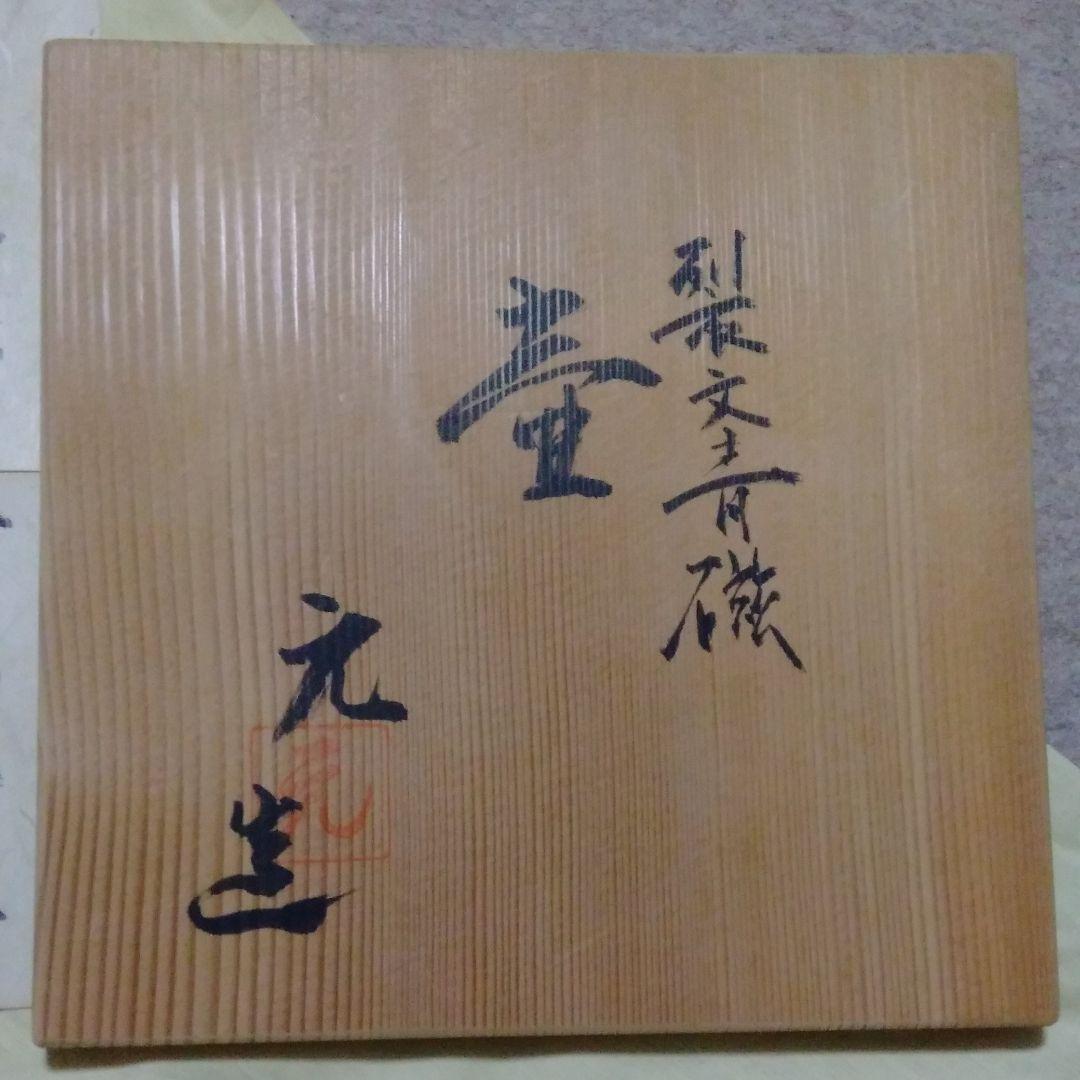 裂文青磁
壷
元造
元